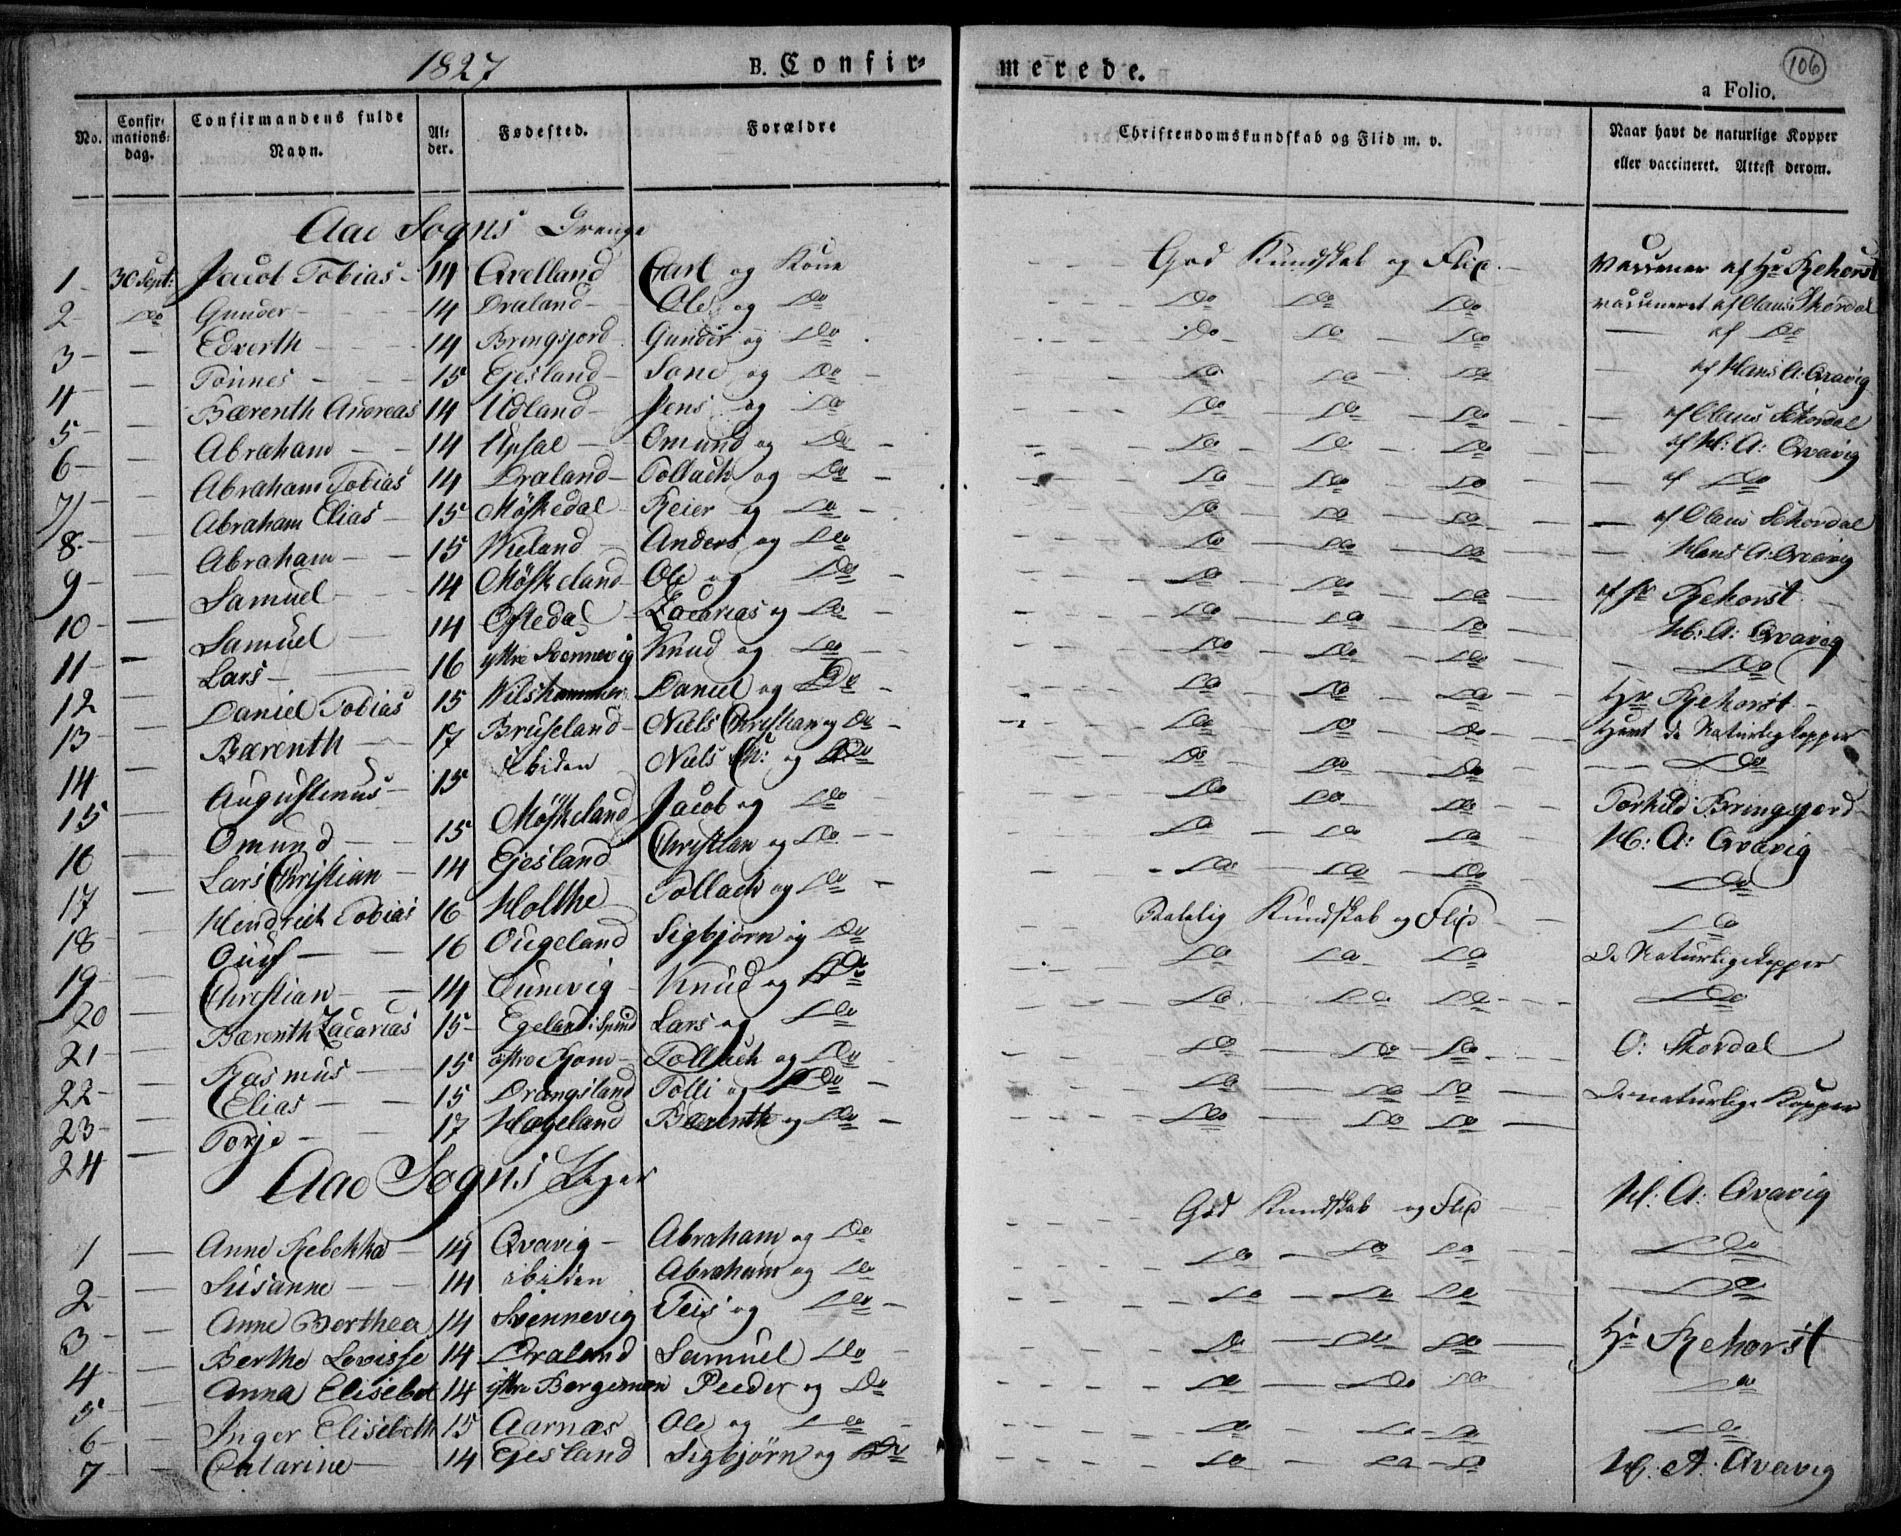 1827 B. Confir- merede. 106
a Folio.
No. Confirmations-dag. Confirmandens fulde Navn. Alder. Fødested. Forældre Christendomskundskab og Flid m. v. Naar havt de naturlige Kopper eller vaccineret. Attest derom.
Aae Sogns Drenge
1 30 Sept: Jacob Tobias 14 Qvelland Carl og Kone God Kundskab og Flid. af Hr Rehorst
2 Do Gunder 14 Draland Ole og Do Do Do Do vaccineret af Claus Skordal
3 Edverth 14 Bringsjord Gunder og Do Do Do Do af Do
4 Tønnes 15 Egesland Sone og Do Do Do Do af Hans A: Qvavig
5 Bærenth Andreas 14 Udland Jens og Do Do Do Do af Claus Skordal
6 Abraham 14 Opsal Omund og Do Do Do Do af H: A: Qvavig
7 Abraham Tobias 14 Draland Tollach og Do Do Do Do af Do
8 Abraham Elias 15 Møskedal Reier og Do Do Do Do af Claus Skordal
9 Abraham 15 Anders og Do Do Do Do Hans A: Qvavig
10 Samuel 14 Møskeland Ole og Do Do Do Do af Hr Rehorst
11 Samuel 14 Oftedal Zacarias og Do Do Do Do H: A: Qvavig
12 Lars 16 ytre Svennevig Knud og Do Do Do Do Do
13 Daniel Tobias 15 Daniel og Do Do Do Do Hr Rehorst
14 Bærenth 17 Bruseland Niels Christian og Do Do Do Do Havt de Naturlig kopper
15 Augustinus 15 ibiden Niels Ch: og Do Do Do Do Do
16 Omund 15 Møskeland Jacob og Do Do Do Do Torkild Bringsjord
17 Lars Christian 14 Egesland Christian og Do Do Do Do H: A: Qvavig
18 Hendrich Tobias 16 Holthe Tollach og Do Do Do Do Do
19 16 Ougeland Sigbjørn og Do Kundskab og Flid Do
20 Christian 14 Knud og Do Do Do Do De Naturlige kopper
21 Bærenth Zacarias 15 Egeland i Spind Lars og Do Do Do Do Do
22 Rasmus 15 Tollach og Do Do Do Do O: Skordal
23 Elias 15 Drangsland Tolli og Do Do Do Do De naturlige Kopper
24 Torje 17 Hageland Bærenth og Do Do Do Do
Aae Sogns Piger
1 Anne Rebekka 14 Qvavig Abraham og Do God Kundskab og Flid H: A: Qvavig
2 Susanne 14 ibiden Abraham og Do Do Do Do Do
3 Anne Berthea 14 Svennevig Teis og Do Do Do Do Do
4 Berthe Lovisse 14 Draland Samuel Do Do Do Do Hr Rehorst
5 Anna Elisebet 14 Peeder og Do Do Do Do Do
6 Inger Elisebeth 15 Aarnæs Ole og Do Do Do Do Do
7 Catarine 14 Egesland Sigbjørn og Do Do Do Do H. A. Qvavig